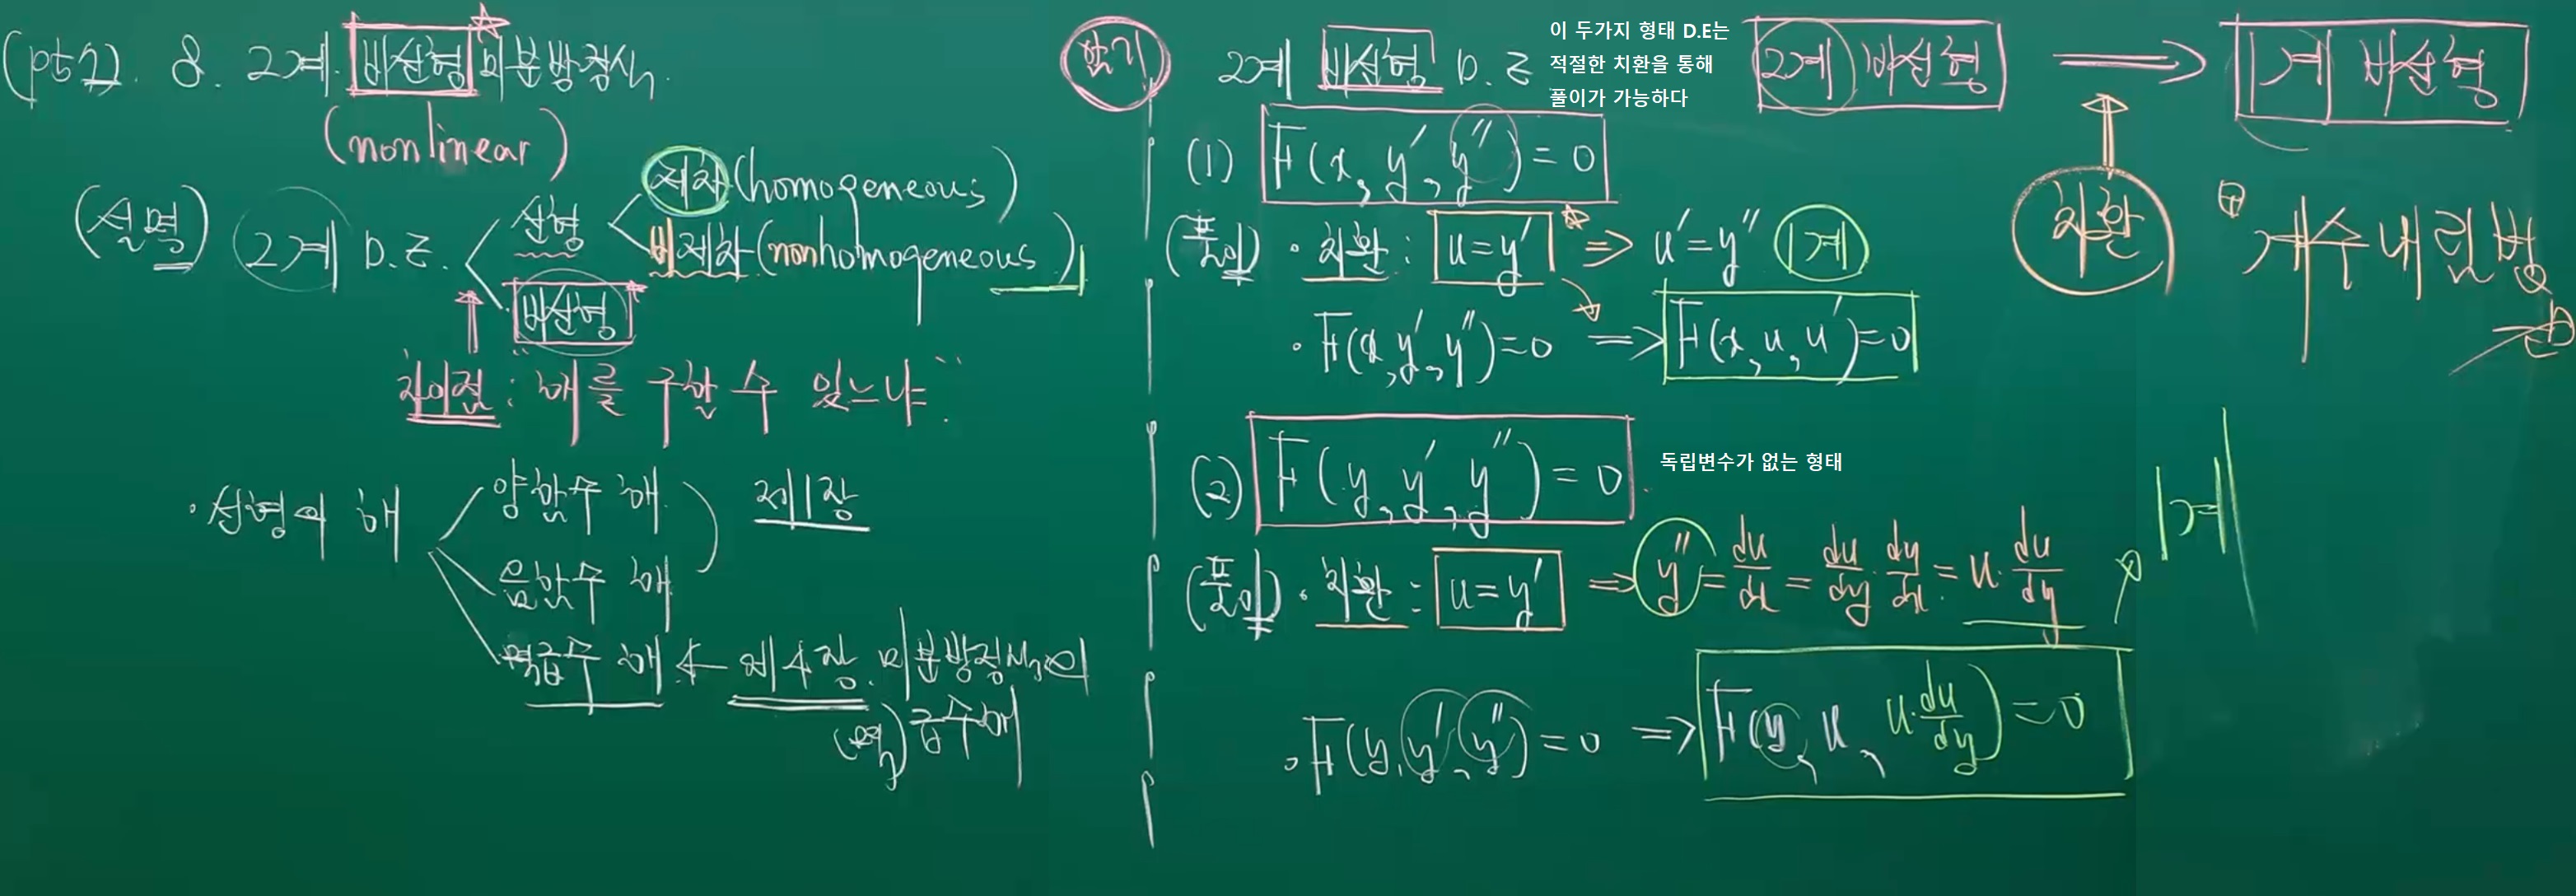 (pt2). 8. 2계 비선형 미분방정식.
(nonlinear)
(설명) 2계 D.E. 선형 제차(homogeneous)
비제차(nonhomogeneous)
비선형
차이점 : "해를 구할 수 있느냐"
· 선형의 해 양함수 해 제1장
음함수 해
멱급수 해 ← 제4장. 미분방정식의
(멱) 급수해
암기 2계 비선형 D.E
이 두가지 형태 D.E는
적절한 치환을 통해
풀이가 가능하다
2계 비선형 ⟹ 1계 비선형
⇑
치환
⊕ 계수내림법
(1) F(x, y', y'') = 0
(풀이) · 치환 : u=y' ⇒ u'=y'' 1계
· F(x, y', y'')=0 ⟹ F(x, u, u')=0
(2) F(y, y', y'') = 0.
독립변수가 없는 형태
(풀이) · 치환 : u=y' ⟹ y'' = du/dx = du/dy · dy/dx = u · du/dy
1계
· F(y, y', y'')=0 ⟹ F(y, u, u·du/dy)=0